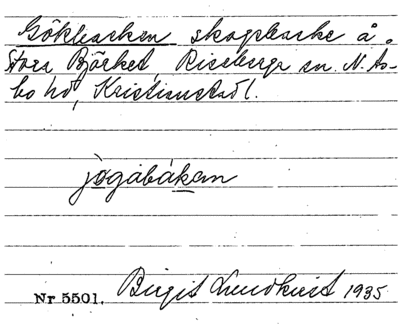 Gökbacken skogsbacke å
Stora Björket, Riseberga sn. N. Ås-
bo hd, Kristianstad l.
jøgabákan
Nr 5501. Birgit Lundkvist 1935